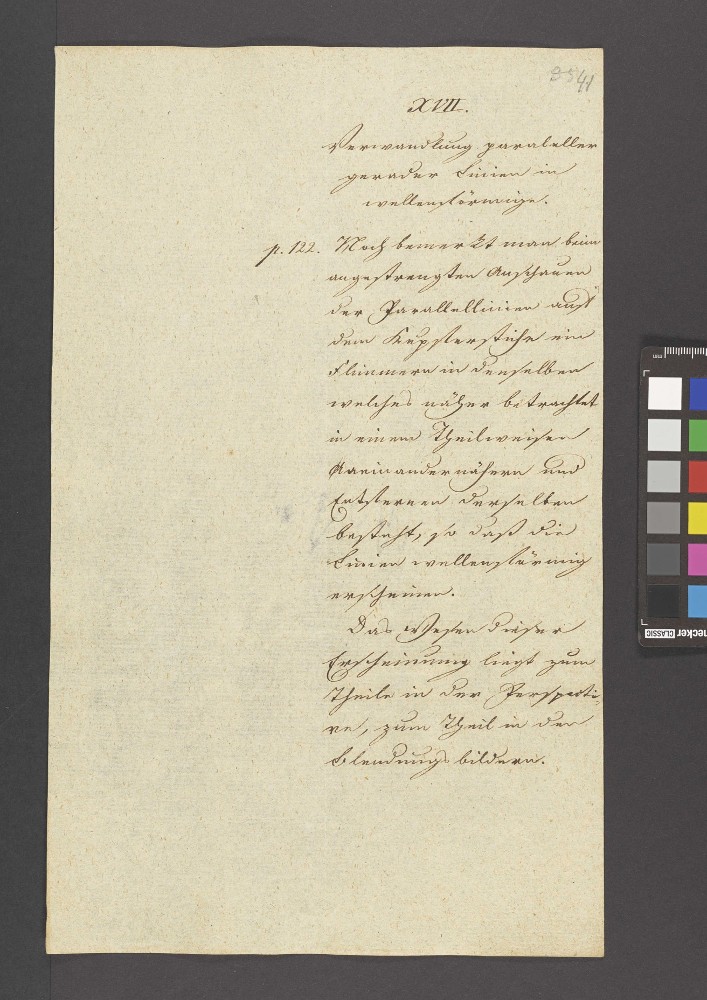 41
XVII.
Verwandlung paraleller
gerader Linien in
wellenförmige.
p. 122. Noch bemerkt man beim
angestrengten Anschauen
der Parallellinien auf
dem Kupferstiche ein
Flimmern in denselben
welches näher betrachtet
in einem Theilweisen
Aneinandernähern und
Entfernen derselben
besteht, so daß die
Linien wellenförmig
erscheinen.
Das Wesen dieser
Erscheinung liegt zum
Theile in der Perspecti-
ve, zum Theil in den
Blendungsbildern.
mm
CLASSIC